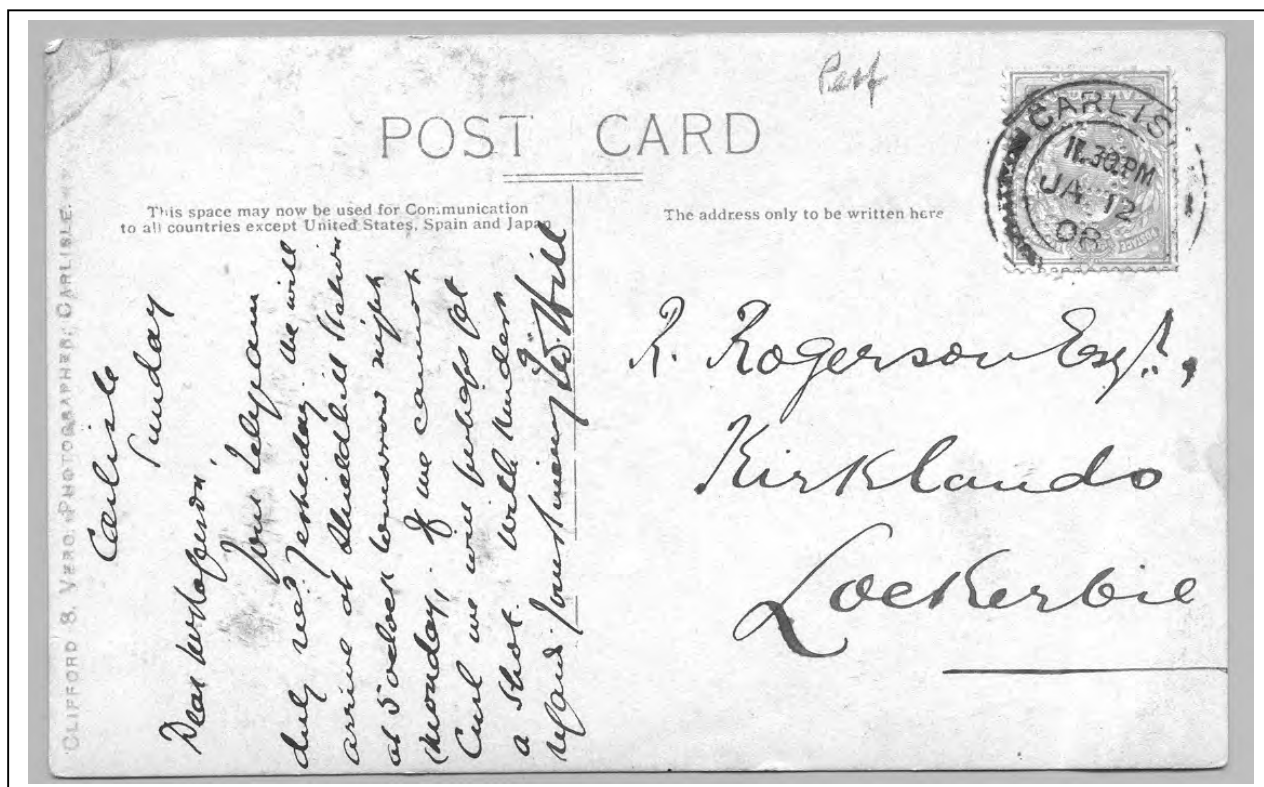 Perf
POST CARD
This space may now be used for Communication
to all countries except United States, Spain and Japan
The address only to be written here
CARLIS
11.30PM
JA 12
08
CLIFFORD S. VERO, PHOTOGRAPHER, CARLISLE.
Carlisle
Sunday
Dear Mr Rogerson,
Your Telegram
duly recd yesterday we will
arrive at Station
at 5 oclock tomorrow night
(Monday), if we cannot
Curl we will perhaps get
a shot. With kindest
regards. Yours sincerely Hill
R. Rogerson Esqr.,
Kirklands
Lockerbie